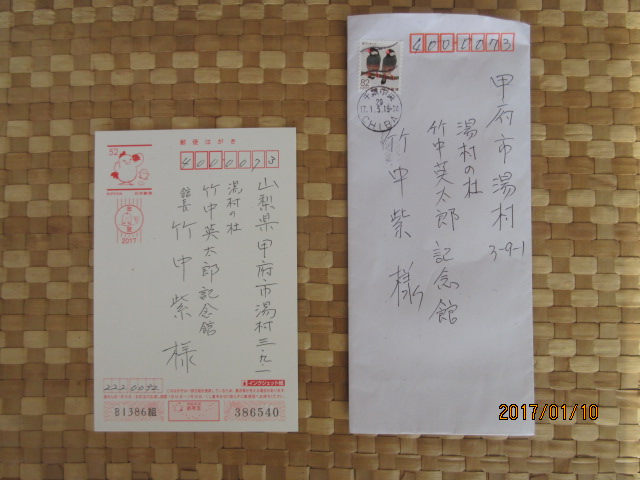 郵便はがき
52
4000073
山梨県甲府市湯村三-九-一
湯村の杜
竹中英太郎記念館
館長 竹中紫様
2017
222-0052
インクジェット紙
B1386組
386540
400-0073
82
17.1.5
CHIBA
甲府市湯村
3-9-1
湯村の杜
竹中英太郎記念館
竹中紫様
2017/01/10